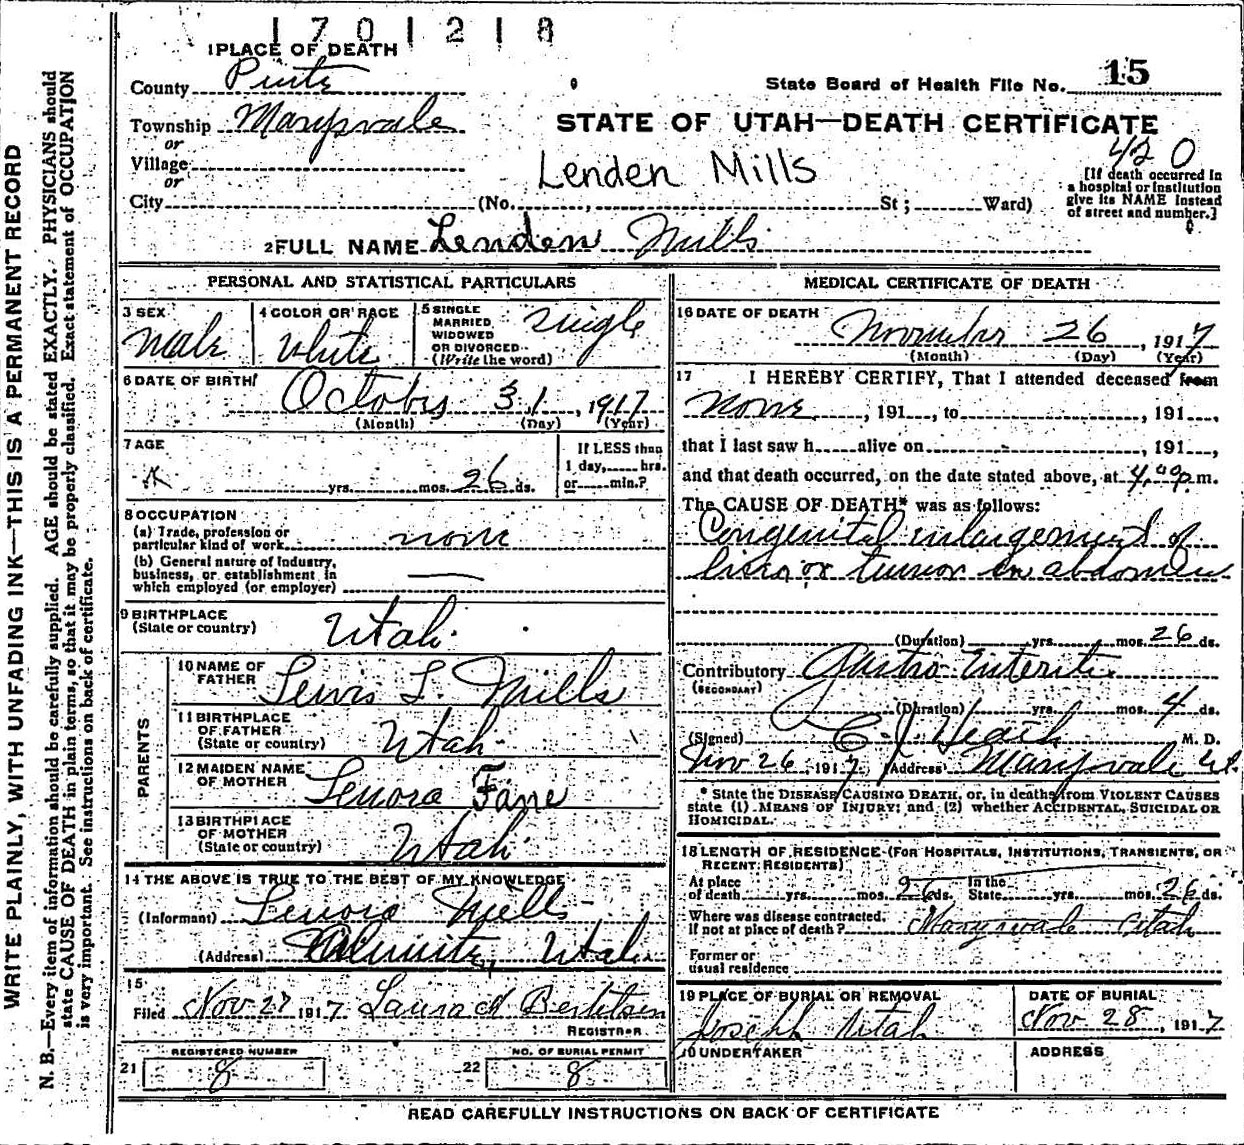 1701218
1 PLACE OF DEATH
County Piute
State Board of Health File No. 15
Township Marysvale
or
STATE OF UTAH—DEATH CERTIFICATE
420
Village
or
Lenden Mills
City (No. , St; Ward)
[If death occurred in
a hospital or institution
give its NAME instead
of street and number.]
2 FULL NAME Lenden Mills
PERSONAL AND STATISTICAL PARTICULARS
3 SEX
male
4 COLOR OR RACE
White
5 SINGLE
MARRIED
WIDOWED
OR DIVORCED
(Write the word)
single
6 DATE OF BIRTH
October 31, 1917
(Month) (Day) (Year)
7 AGE
yrs. mos. 26 ds.
If LESS than
1 day, hrs.
or min.?
8 OCCUPATION
(a) Trade, profession or
particular kind of work none
(b) General nature of Industry,
business, or establishment in
which employed (or employer)
9 BIRTHPLACE
(State or country) Utah
PARENTS
10 NAME OF
FATHER Lewis L. Mills
11 BIRTHPLACE
OF FATHER
(State or country) Utah
12 MAIDEN NAME
OF MOTHER Lenora Fane
13 BIRTHPLACE
OF MOTHER
(State or country) Utah
14 THE ABOVE IS TRUE TO THE BEST OF MY KNOWLEDGE
(Informant) Lenora Mills
(Address) Alunite, Utah
15
Filed Nov 27 1917 Laura M Bertelsen
REGISTRAR
21 REGISTERED NUMBER
8
22 NO. OF BURIAL PERMIT
8
MEDICAL CERTIFICATE OF DEATH
16 DATE OF DEATH
November 26, 1917
(Month) (Day) (Year)
17 I HEREBY CERTIFY, That I attended deceased from
none, 191 , to , 191 ,
that I last saw h alive on , 191 ,
and that death occurred, on the date stated above, at 4.00 p.m.
The CAUSE OF DEATH* was as follows:
Congenital enlargement of
liver or tumor in abdomen
(Duration) yrs. mos. 26 ds.
Contributory Gastro Enteritis
(SECONDARY)
(Duration) yrs. mos. 4 ds.
(Signed) C. J Heath M. D.
Nov 26, 1917 (Address) Marysvale Ut.
* State the DISEASE CAUSING DEATH, or, in deaths from VIOLENT CAUSES
state (1) MEANS OF INJURY; and (2) whether ACCIDENTAL, SUICIDAL OR
HOMICIDAL.
18 LENGTH OF RESIDENCE (FOR HOSPITALS, INSTITUTIONS, TRANSIENTS, OR
RECENT RESIDENTS)
At place
of death yrs. mos. 26 ds.
In the
State yrs. mos. 26 ds.
Where was disease contracted,
if not at place of death? Marysvale Utah
Former or
usual residence
19 PLACE OF BURIAL OR REMOVAL
Joseph Utah
DATE OF BURIAL
Nov 28, 1917
20 UNDERTAKER
ADDRESS
READ CAREFULLY INSTRUCTIONS ON BACK OF CERTIFICATE
WRITE PLAINLY, WITH UNFADING INK—THIS IS A PERMANENT RECORD
N. B.—Every item of information should be carefully supplied. AGE should be stated EXACTLY. PHYSICIANS should
state CAUSE OF DEATH in plain terms, so that it may be properly classified. Exact statement of OCCUPATION
is very important. See instructions on back of certificate.